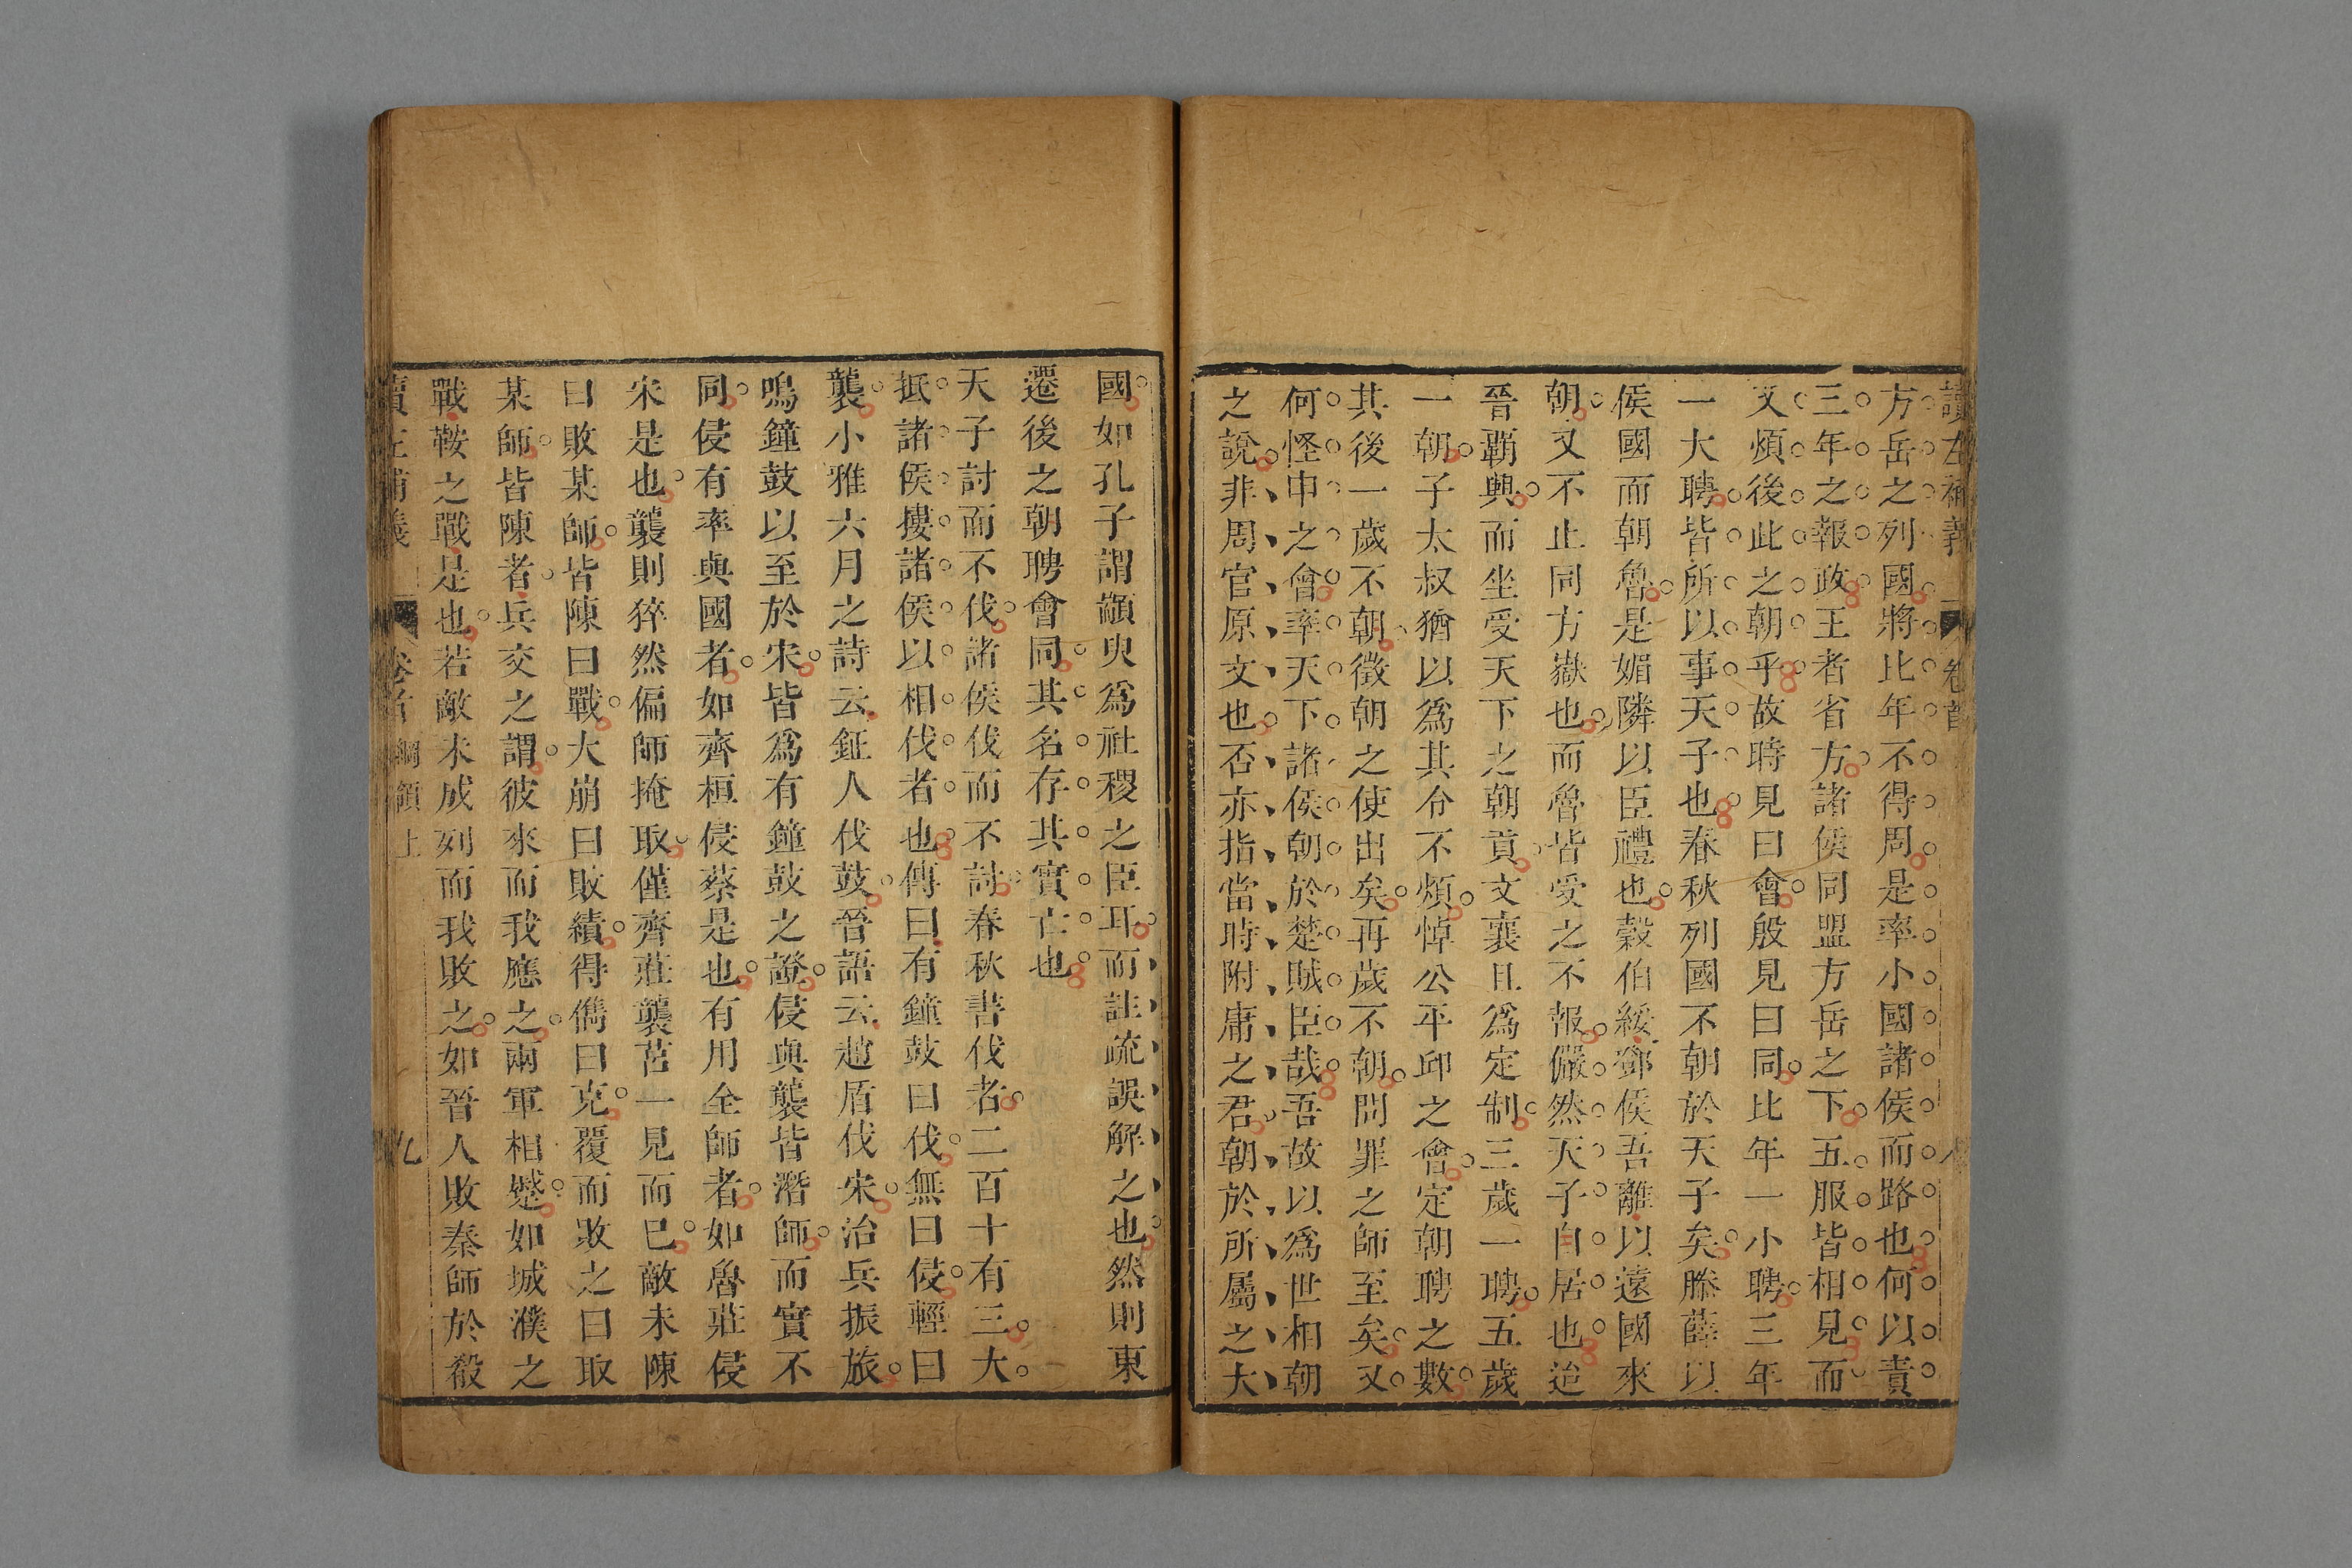 讀左補義 卷首 八
方岳之列國將比年不得周是率小國諸侯而路也何以責
三年之報政王者省方諸侯同盟方岳之下五服皆相見而
又煩後此之朝乎故時見曰會殷見曰同比年一小聘三年
一大聘皆所以事天子也春秋列國不朝於天子矣滕薛以
侯國而朝魯是媚隣以臣禮也穀伯綏鄧侯吾離以遠國來
朝又不止同方嶽也而魯皆受之不報儼然天子自居也迨
晉覇興而坐受天下之朝貢文襄且爲定制三歲一聘五歲
一朝子太叔猶以爲其令不煩悼公平邱之會定朝聘之數
其後一歲不朝徵朝之使出矣再歲不朝問罪之師至矣又
何怪申之會率天下諸侯朝於楚賊臣哉吾故以爲世相朝
之說非周官原文也否亦指當時附庸之君朝於所屬之大
國如孔子謂顓臾爲社稷之臣耳而註疏誤解之也然則東
遷後之朝聘會同其名存其實亡也
天子討而不伐諸侯伐而不討春秋書伐者二百十有三大
抵諸侯摟諸侯以相伐者也傳曰有鐘鼓曰伐無曰侵輕曰
襲小雅六月之詩云鉦人伐鼓晉語云趙盾伐宋治兵振旅
鳴鐘鼓以至於宋皆爲有鐘鼓之證侵與襲皆潛師而實不
同侵有率與國者如齊桓侵蔡是也有用全師者如魯莊侵
宋是也襲則猝然偏師掩取僅齊莊襲莒一見而已敵未陳
曰敗某師皆陳曰戰大崩曰敗績得儁曰克覆而敗之曰取
某師皆陳者兵交之謂彼來而我應之兩軍相蹙如城濮之
戰鞍之戰是也若敵未成列而我敗之如晉人敗秦師於殽
讀左補義 卷首 綱領上 九